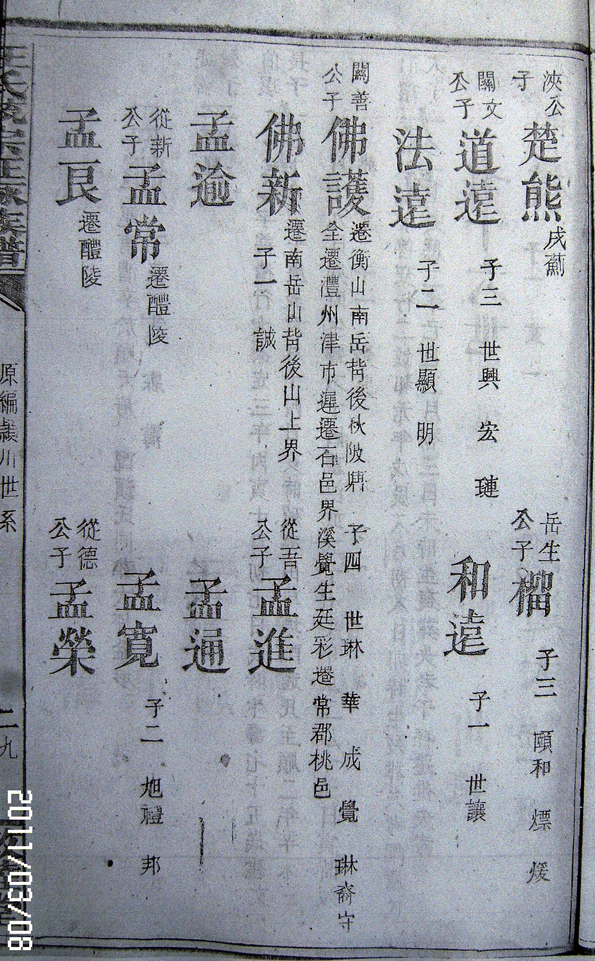 浹公子 楚熊 戌薊
岳生公子 榴 子三 頤和 熛 煖
關文公子 道遠 子三 世興 宏 璉
和遠 子一 世讓
法遠 子二 世顯 明
關善公子 佛護 遷衡山南岳背後秋陂 子四 世琳 華 成 覺 琳裔守
全遷澧州津市遲遷石邑界溪覺生廷彩遷常郡桃邑
佛新 遷南岳山背後山上界
子一 誠
從吾公子 孟進
孟逾
孟通
從新公子 孟常 遷醴陵
孟寬 子二 旭禮 邦
孟良 遷醴陵
從德公子 孟榮
王氏 宗正 族譜
原編 川世系
二九
2011/03/08